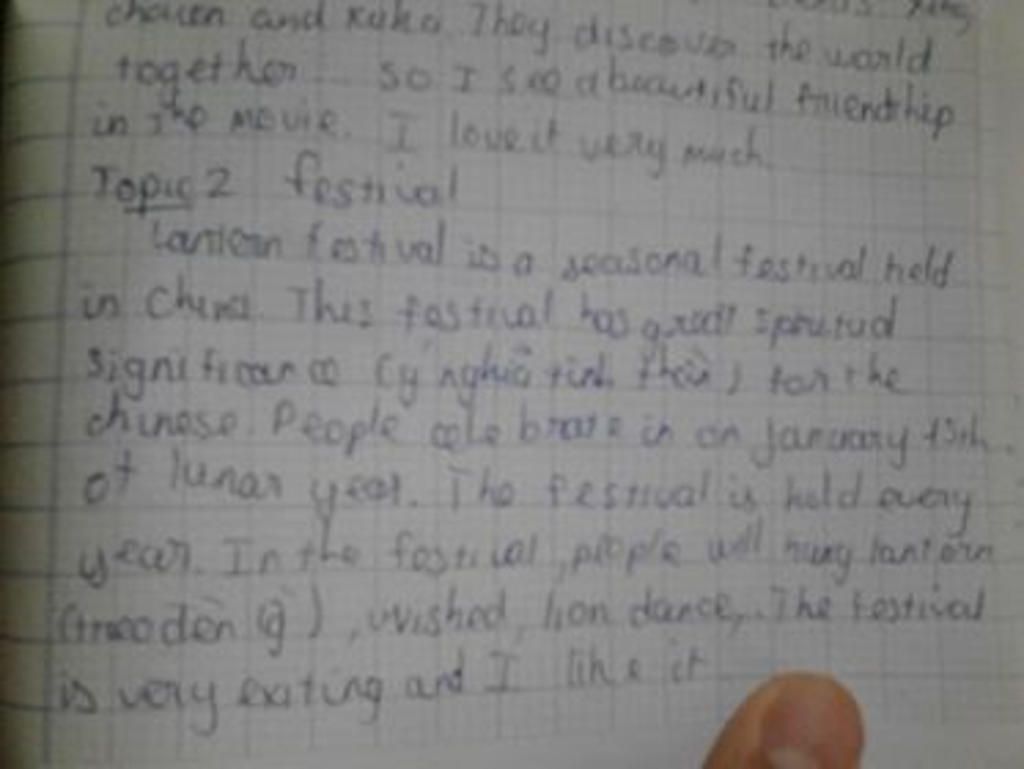 and They discover the world
together so I see a beautiful friendship
in the movie. I love it very much.
Topic 2 festival
Lantern festival is a seasonal festival held
in China. This festival has great
significance (ý nghĩa tinh thần) for the
chinese. People celebrate in on january 15th.
of lunar year. The festival is held every
year. In the festival, people will hang lantern
(treo đèn ), wished, lion dance,.. The festival
is very exiting and I like it